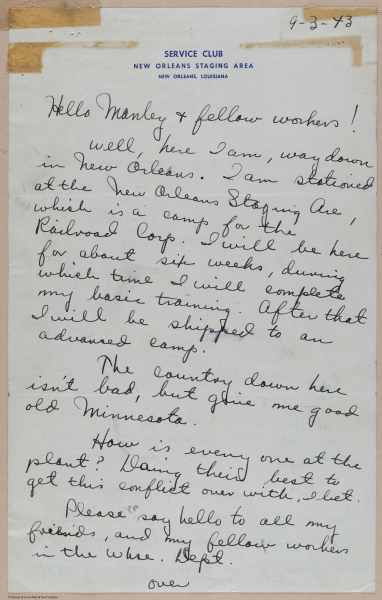 9-3-43
SERVICE CLUB
NEW ORLEANS STAGING AREA
NEW ORLEANS, LOUISIANA
Hello Manley & fellow workers!
Well, here I am, way down
in New Orleans. I am stationed
at the New Orleans Staging Are,
which is a camp for the
Railroad Corp. I will be here
for about six weeks, during
which time I will complete
my basic training. After that
I will be shipped to an
advansed camp.
The country down here
isn't bad, but give me good
old Minnesota.
How is every one at the
plant? Doing their best to
get this conflict over with, I bet.
Please say hello to all my
friends, and my fellow workers
in the Whse. Dept.
over